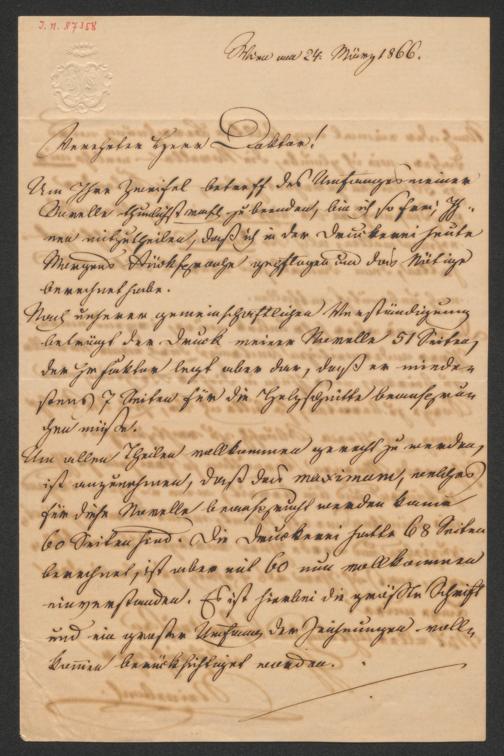 J. N. 87358
Wien am 24. März 1866.
Verehrter Herr Doktor!
Um Ihre Zweifel betreff des Umfanges meiner
Novelle zu beenden, bin ich so frei, Ih-
nen mitzutheilen, daß ich in der Druckerei heute
Morgens Rücksprache gepflogen und das Nötige
berechnet habe.
Nach unserer gemeinschaftlichen Verständigung
beträgt der Druck meiner Novelle 51 Seiten,
der Hr Faktor legt aber dar, daß er minde-
stens 7 Seiten für die Holzschnitte beanspru-
chen müsse.
Um allen Theilen vollkommen gerecht zu werden,
ist anzunehmen, daß das maximum, welches
für diese Novelle beansprucht werden kann
60 Seiten sind. Die Druckerei hatte 68 Seiten
berechnet, ist aber mit 60 nun vollkommen
einverstanden. Es ist hierbei die größte Schrift
und ein großer Umfang der Zeichnungen voll-
kommen berücksichtiget worden.